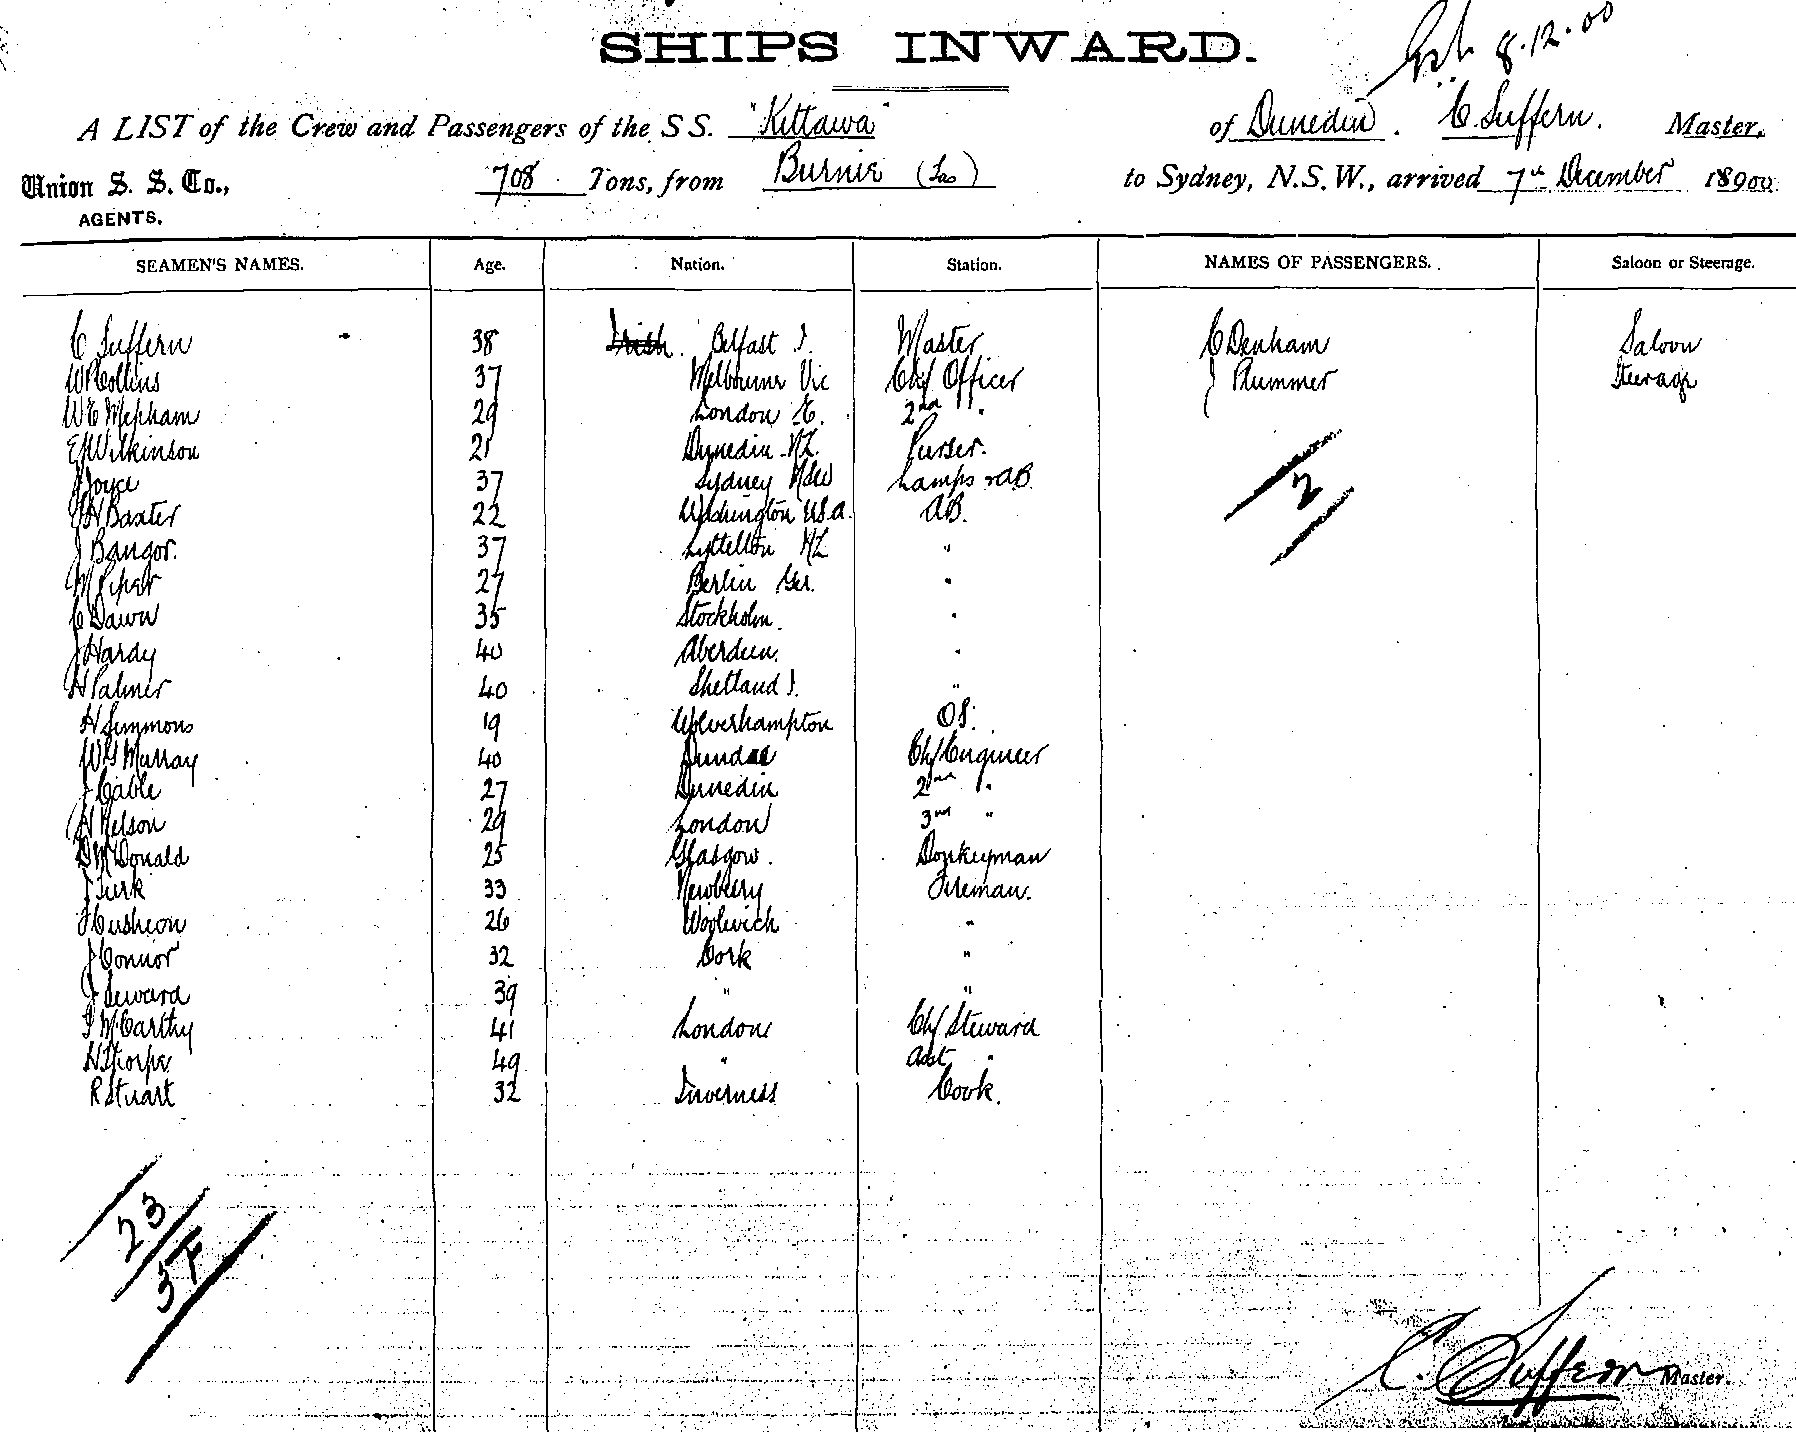 8.12.00
SHIPS INWARD.
A LIST of the Crew and Passengers of the S S. "Kittawa" of Dunedin. C Suffern. Master,
Union S. S. Co., 708 Tons, from Burnie (Tas) to Sydney, N.S.W., arrived 7th December 18900
AGENTS.
SEAMEN'S NAMES. Age. Nation. Station. NAMES OF PASSENGERS. Saloon or Steerage.
C Suffern 38 Irish. Belfast I. Master C Denham Saloon
W P Collins 37 Melbourne Vic Chf Officer J Plummer Steerage
W E Mepham 29 London E. 2nd "
E H Wilkinson 21 Dunedin NZ. Purser.
J Joyce 37 Sydney NSW Lamps & AB
H Baxter 22 Washington USA. AB.
J Bangor. 37 Lyttelton NZ "
M Piper 27 Berlin Ger. "
C Dawn 35 Stockholm. "
J Hardy 40 Aberdeen. "
H Palmer 40 Shetland I. "
H Simmons 19 Wolverhampton OS.
W G Murray 40 Dundee Chf Engineer
J Cable 27 Dunedin 2nd "
H Nelson 29 London 3rd "
D McDonald 25 Glasgow. Donkeyman
J Turk 33 Newbury Fireman.
J Cusheon 26 Woolwich "
J Connor 32 Cork "
J Seward 39 " "
J McCarthy 41 London Chf Steward
H Thorpe 49 " Asst "
R Stuart 32 Inverness Cook.
2
23
3F
C. Suffern Master.